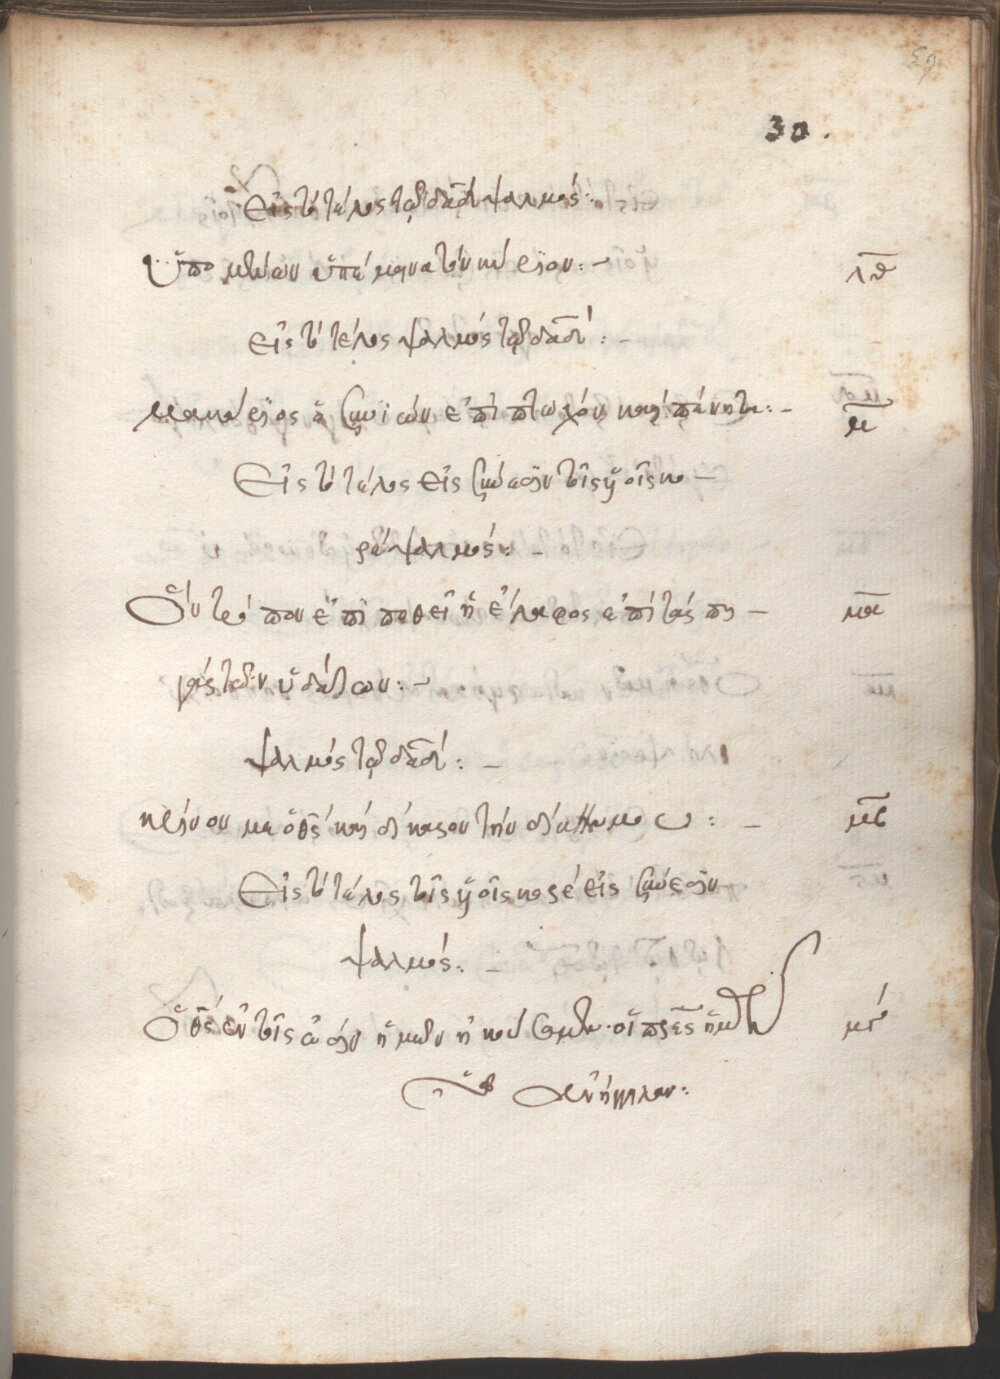 59
30.
Εἰς τὸ τέλος τῷ δα̅δ ψαλμός:
Ὑπομένων ὑπέμεινα τὸν κύριον:— λ̅θ̅
εἰς τὸ τέλος ψαλμὸς τῷ δα̅δ:—
Μακάριος ὁ συνιῶν ἐπὶ πτωχὸν καὶ πένητα:— μ̅
Εἰς τὸ τέλος εἰς σύνεσιν τοῖς υἱοῖς κο—
ρέ ψαλμός:—
Ὃν τρόπον ἐπιποθεῖ ἡ ἔλαφος ἐπὶ τὰς πη— μ̅α̅
γὰς τῶν ὑδάτων:—
ψαλμὸς τῷ δα̅δ:—
κρῖνόν με ὁ θ̅ς καὶ δίκασον τὴν δίκην μου:— μ̅β̅
Εἰς τὸ τέλος τοῖς υἱοῖς κορέ εἰς σύνεσιν
ψαλμός:—
Ὁ θ̅ς ἐν τοῖς ὠσὶν ἡμῶν ἠκούσαμεν· οἱ π̅ρ̅ε̅ς ἡμῶν μγ
ἀνήγγειλαν: